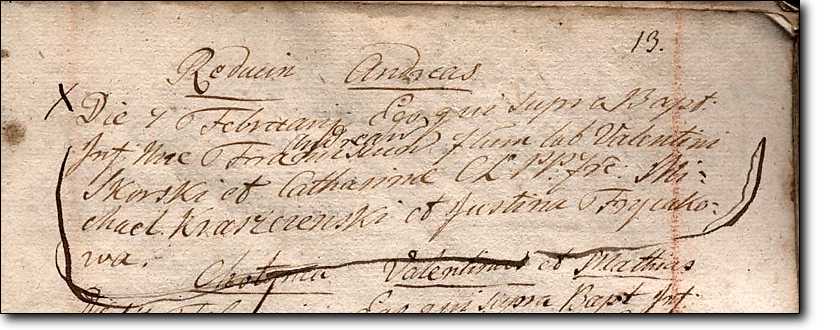 13.
Reducin Andreas
X Die 7 Februarij Ego qui supra Bapt.
Inf. Nne Andream filium lab Valentini
Skorski et Catharinæ CL PP. fre. Mi-
chael. et Justina Frycako-
wa.
Valentinus et Mathias
Ego qui supra Bapt Inf.